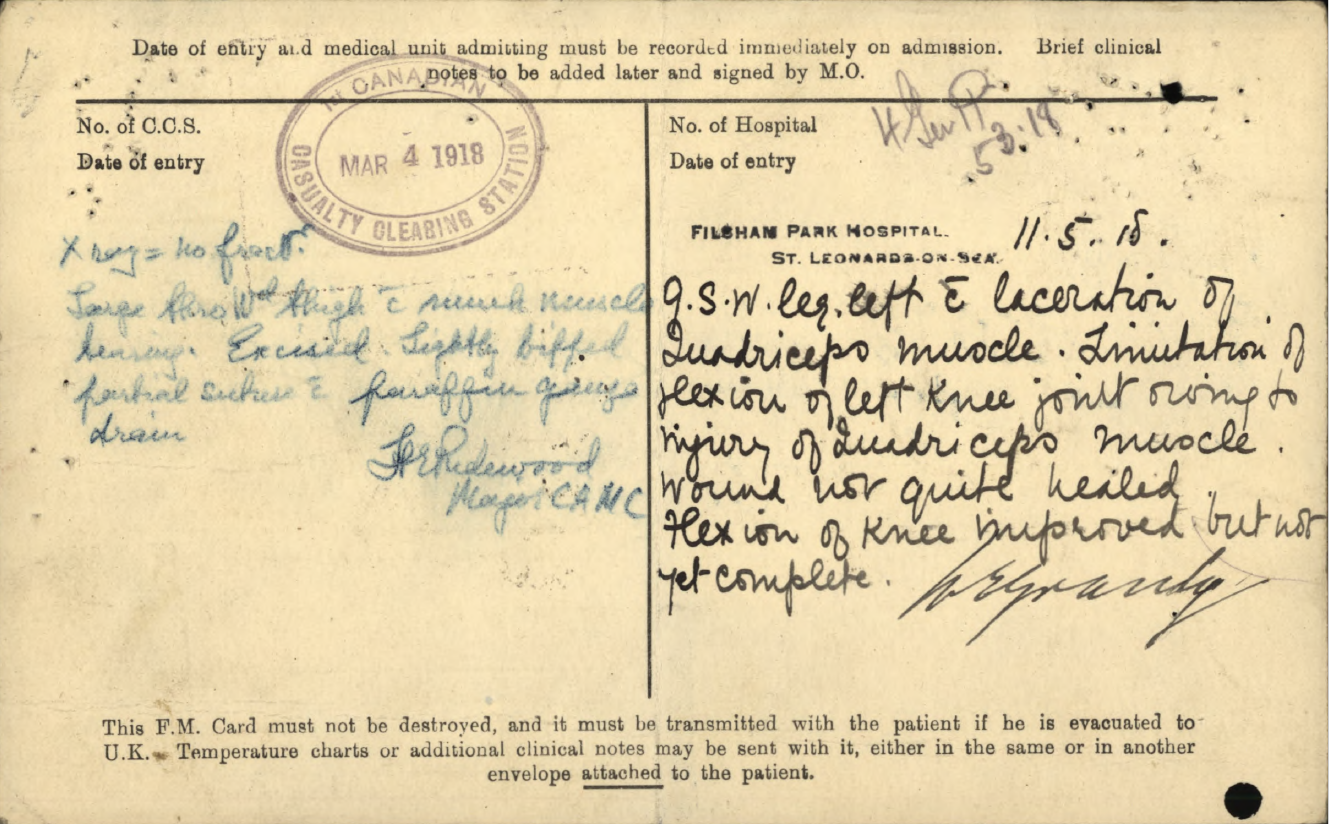 Date of entry and medical unit admitting must be recorded immediately on admission. Brief clinical
notes to be added later and signed by M.O.
No. of C.C.S.
Date of entry
1st CANADIAN
MAR 4 1918
CASUALTY CLEARING STATION
X ray = no fract.
Large thro Wd thigh c̄ much muscle
tearing. Excised. Lightly bipped
partial suture c̄ paraffin gauze
drain
Major CAMC
No. of Hospital
Date of entry
4 Gen
5 3.18
FILSHAM PARK HOSPITAL.
ST. LEONARDS-ON-SEA.
11.5.18.
G.S.W. leg. left c̄ laceration of
Quadriceps muscle. Limitation of
flexion of left Knee joint owing to
injury of Quadriceps muscle.
Wound not quite healed.
Flexion of Knee improved but not
yet complete.
This F.M. Card must not be destroyed, and it must be transmitted with the patient if he is evacuated to
U.K. Temperature charts or additional clinical notes may be sent with it, either in the same or in another
envelope attached to the patient.